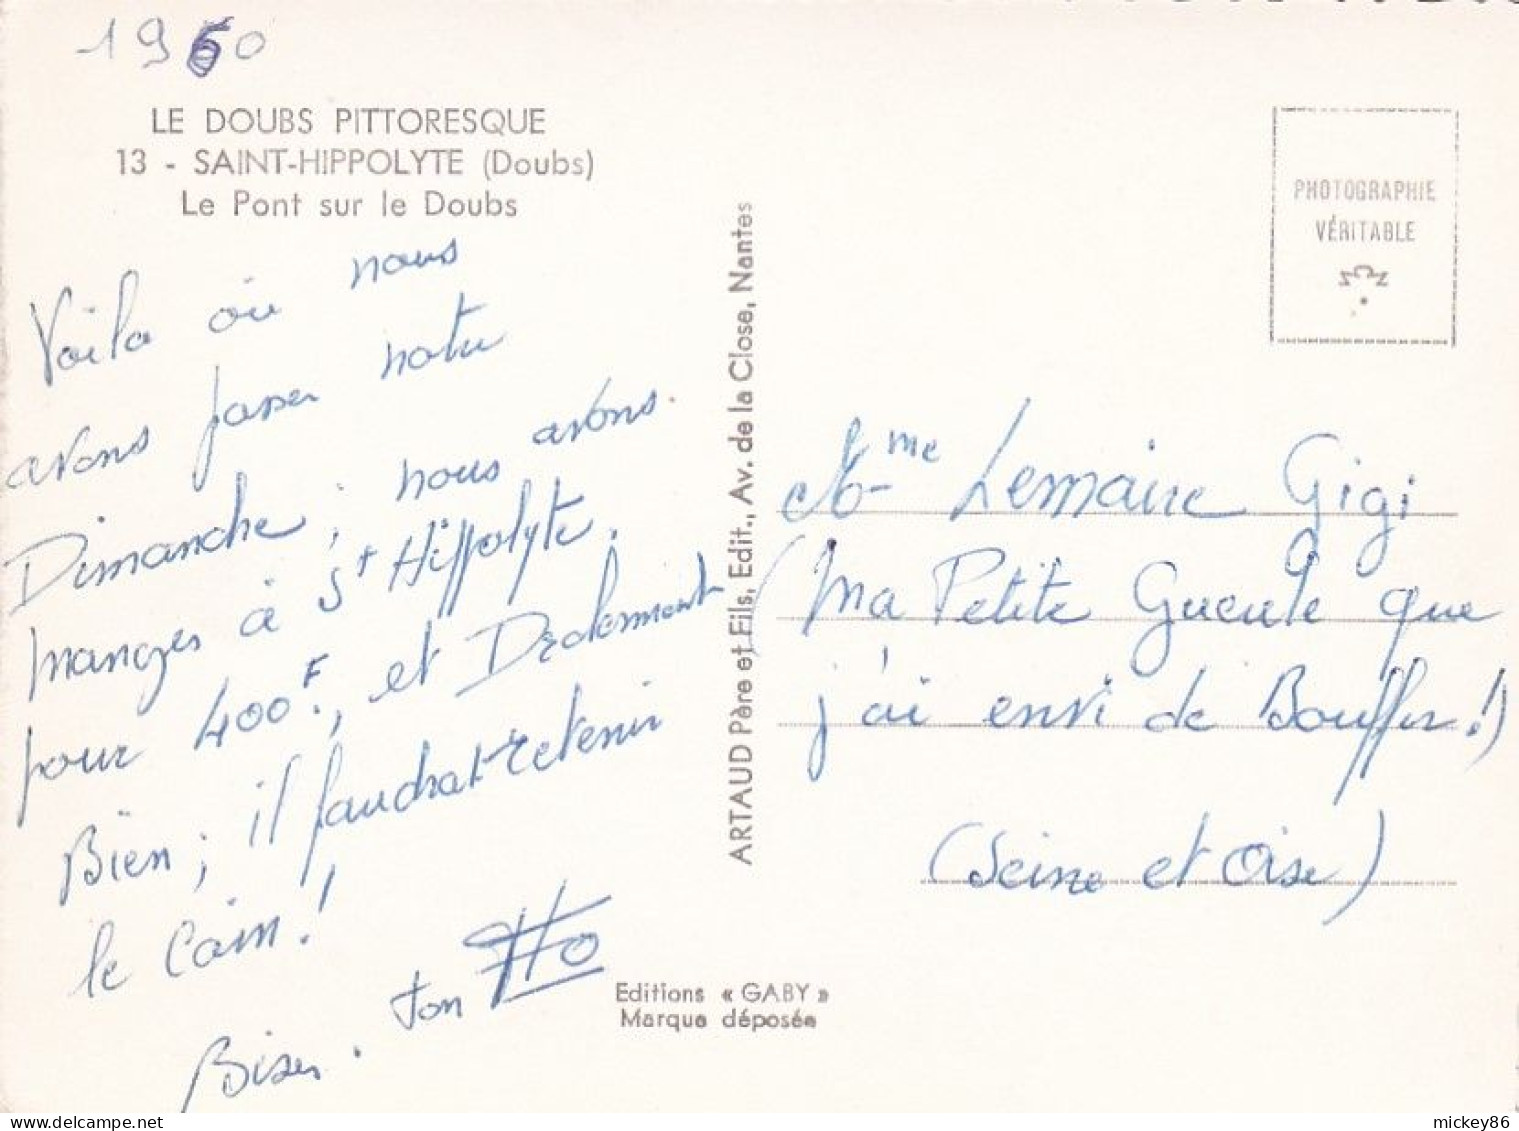 1960
LE DOUBS PITTORESQUE
13 - SAINT-HIPPOLYTE (Doubs)
Le Pont sur le Doubs
Voila où nous
avons passer notre
Dimanche; nous avons
manger à St Hippolyte.
pour 400F., et Drolement
Bien; il faudrat-retenir
le Coin!
Bises. ton
ARTAUD Père et Fils, Edit., Av. de la Close, Nantes
Editions « GABY »
Marque déposée
PHOTOGRAPHIE
VÉRITABLE
Mme Lemaire Gigi
(Ma Petite Gueule que
j'ai envi de Bouffer!)
(Seine et Oise)
mickey86